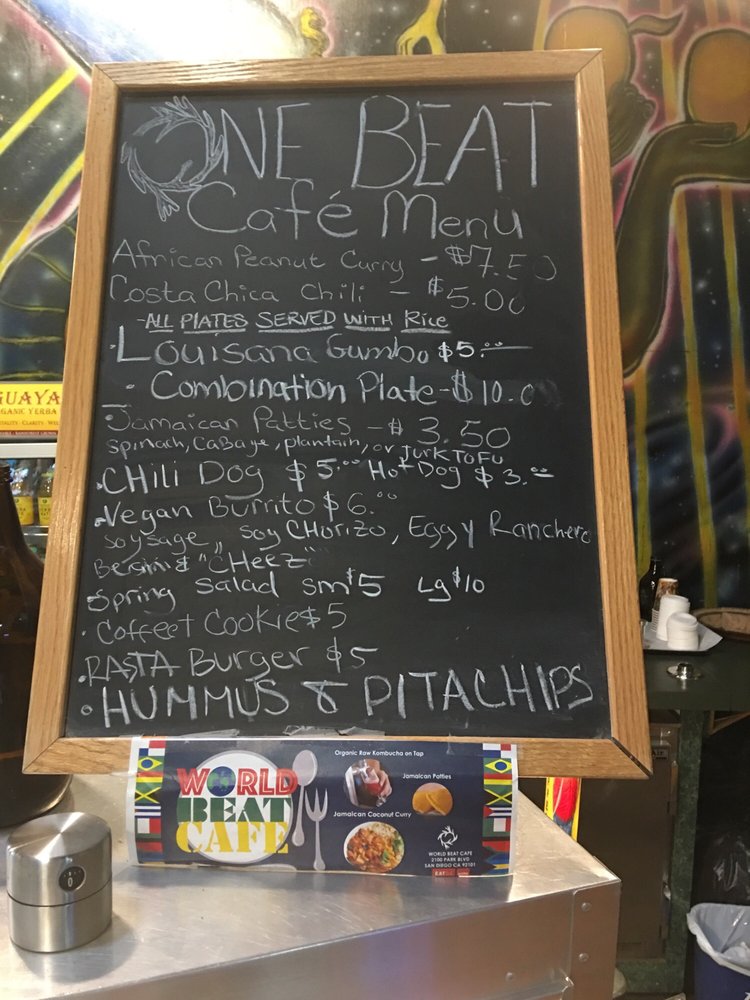 ONE BEAT
Café Menu
African Peanut Curry - $7.50
Costa Chica Chili - $5.00
-ALL PLATES SERVED WITH Rice
·Louisana Gumbo $5.00
· Combination Plate - $10.0
·Jamaican Patties - $3.50
Spinach, CaBage, plantain, or JurK ToFu
·CHili Dog $5.00 Hot Dog $3.00
·Vegan Burrito $6.00
soysage, soy CHorizo, Eggy Ranchero
& "CHeez"
·Spring Salad sm $5 Lg $10
·Coffeet Cookie $5
·RASTA Burger $5
·HUMMUS & PITACHIPS
GUAYA
GANIC YERBA
WORLD
BEAT
CAFE
Organic Raw Kombucha on Tap
Jamaican Patties
Jamaican Coconut Curry
WORLD BEAT CAFE
2100 PARK BLVD
SAN DIEGO CA 92101